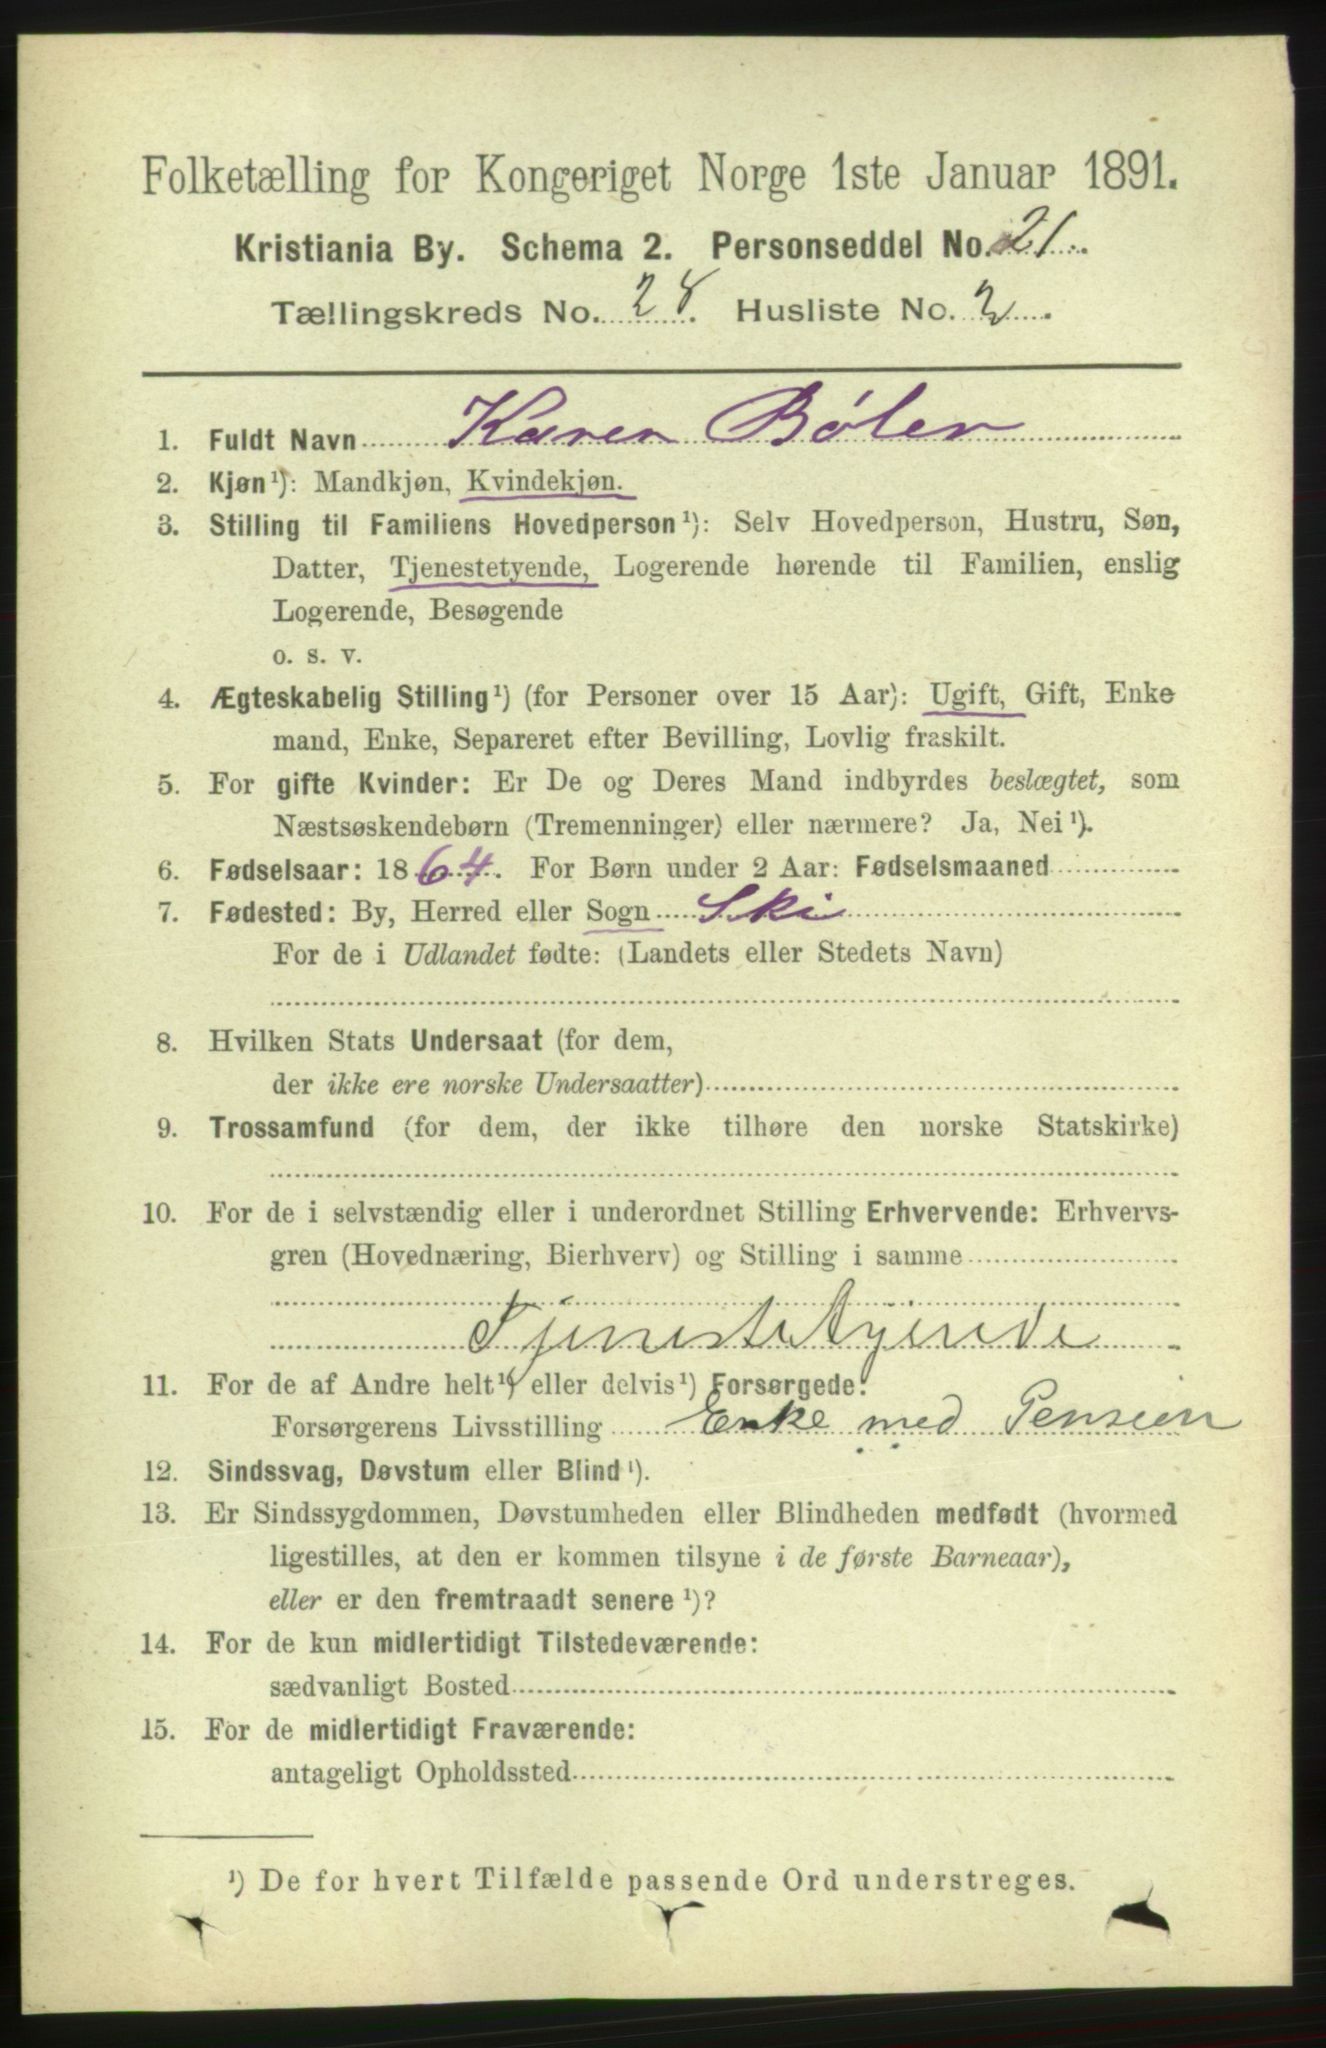 Folketælling for Kongeriget Norge 1ste Januar 1891.
Kristiania By. Schema 2. Personseddel No. 21.
Tællingskreds No. 28. Husliste No. 2.
1. Fuldt Navn Karen Bøler
2. Kjøn¹): Mandkjøn, Kvindekjøn.
3. Stilling til Familiens Hovedperson¹): Selv Hovedperson, Hustru, Søn,
Datter, Tjenestetyende, Logerende hørende til Familien, enslig
Logerende, Besøgende
o. s. v.
4. Ægteskabelig Stilling¹) (for Personer over 15 Aar): Ugift, Gift, Enke
mand, Enke, Separeret efter Bevilling, Lovlig fraskilt.
5. For gifte Kvinder: Er De og Deres Mand indbyrdes beslægtet, som
Næstsøskendebørn (Tremenninger) eller nærmere? Ja, Nei¹).
6. Fødselsaar: 1864. For Børn under 2 Aar: Fødselsmaaned
7. Fødested: By, Herred eller Sogn Ski
For de i Udlandet fødte: (Landets eller Stedets Navn)
8. Hvilken Stats Undersaat (for dem,
der ikke ere norske Undersaatter)
9. Trossamfund (for dem, der ikke tilhøre den norske Statskirke)
10. For de i selvstændig eller i underordnet Stilling Erhvervende: Erhvervs-
gren (Hovednæring, Bierhverv) og Stilling i samme
Tjenestetyende
11. For de af Andre helt¹) eller delvis¹) Forsørgede:
Forsørgerens Livsstilling Enke med Pension
12. Sindssvag, Døvstum eller Blind¹).
13. Er Sindssygdommen, Døvstumheden eller Blindheden medfødt (hvormed
ligestilles, at den er kommen tilsyne i de første Barneaar),
eller er den fremtraadt senere¹)?
14. For de kun midlertidigt Tilstedeværende:
sædvanligt Bosted
15. For de midlertidigt Fraværende:
antageligt Opholdssted
¹) De for hvert Tilfælde passende Ord understreges.